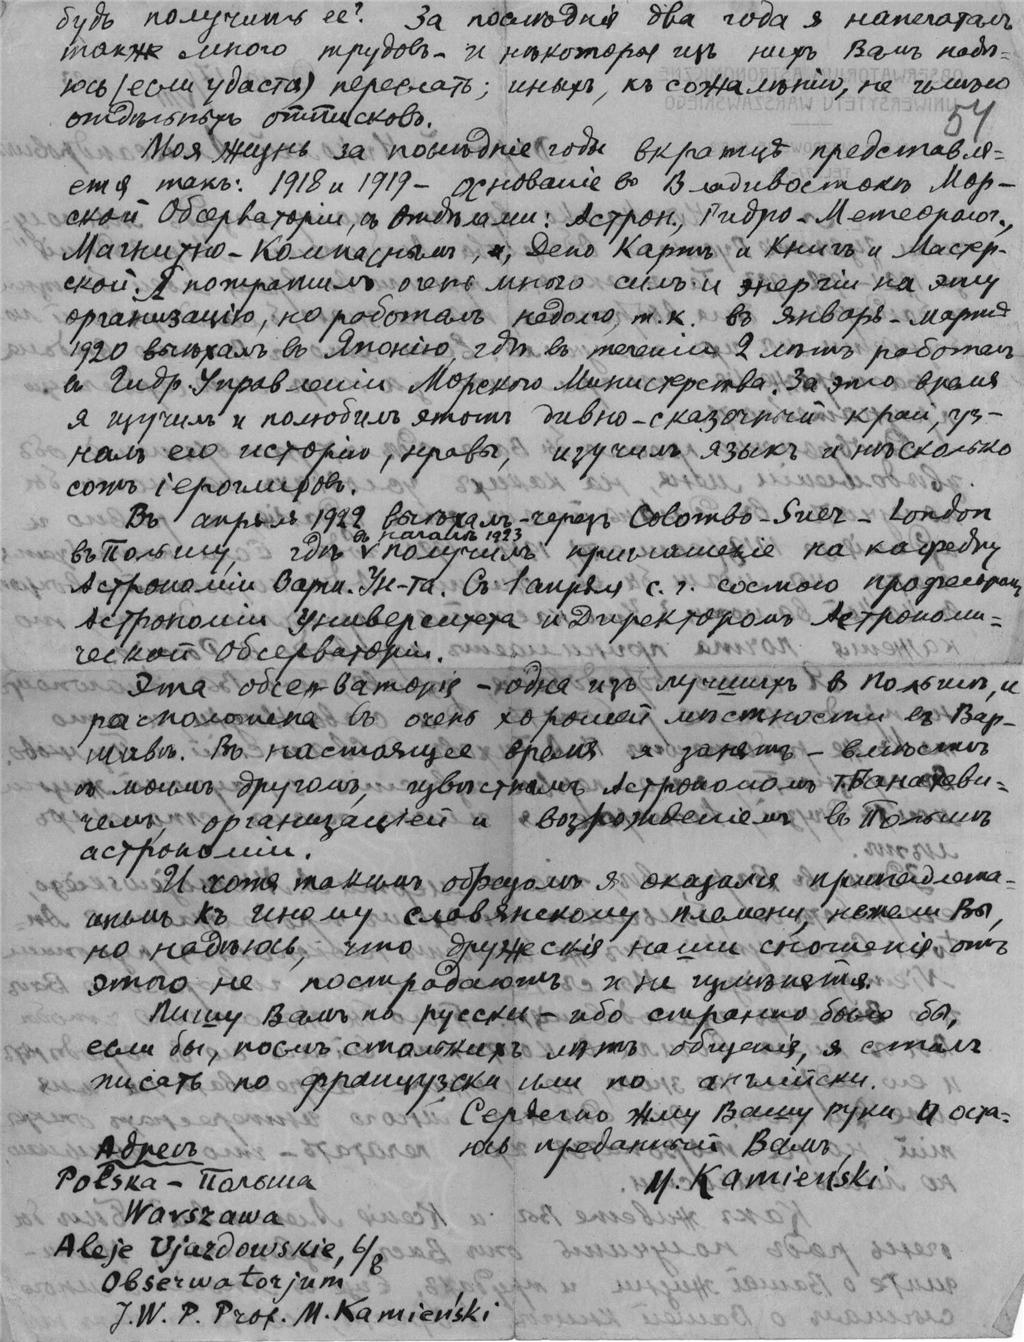 будь получить ее? За послѣднія два года я напечаталъ
также много трудовъ – и нѣкоторыя изъ нихъ Вамъ надѣ=
юсь (если удастся) переслать; иныхъ, къ сожалѣнію, не имѣю
отдѣльныхъ оттисковъ.
54
Моя жизнь за послѣдніе годы вкратцѣ представля=
ется такъ: 1918 и 1919 – основаніе во Владивостокѣ Мор-
ской Обсерваторіи, съ отдѣлами: Астрон., Гидро-Метеоролог.,
Магнитно-Компаснымъ, и, Депо Картъ и Книгъ и Мастер-
ской. Я потратилъ очень много силъ и энергіи на эту
организацію, но работалъ недолго, т.к. въ январѣ-мартѣ
1920 выѣхалъ въ Японію, гдѣ въ теченіи 2 лѣтъ работалъ
въ Гидр. Управленіи Морского Министерства. За это время
я изучилъ и полюбилъ этотъ дивно-сказочный край, уз-
налъ его исторію, нравы, изучилъ языкъ и нѣсколько
сотъ іероглифовъ.
Въ апрѣлѣ 1922 выѣхалъ – черезъ Colombo – Suez – London
въ Польшу, гдѣ въ началѣ 1923 получилъ приглашеніе на кафедру
Астрономіи Варш. Ун-та. Съ 1 апрѣля с. г. состою профессоромъ
Астрономіи Университета и Директоромъ Астрономи=
ческой Обсерваторіи.
Эта обсерваторія – одна изъ лучшихъ въ Польшѣ, и
расположена въ очень хорошей мѣстности въ Вар-
шавѣ. Въ настоящее время я занятъ – вмѣстѣ
съ моимъ другомъ, извѣстнымъ Астрономомъ Т. Банахеви=
чемъ, организаціей и возрожденіемъ въ Польшѣ
астрономіи.
И хотя такимъ образомъ я оказался принадлежа-
щимъ къ иному славянскому племени, нежели Вы,
но надѣюсь, что дружескія наши сношенія отъ
этого не пострадаютъ и не измѣнятся.
Пишу Вамъ по русски – ибо странно было бы,
если бы, послѣ столькихъ лѣтъ общенія, я сталъ
писать по французски или по англійски.
Сердечно жму Вашу руку и оста=
юсь преданный Вамъ
M. Kamieński
Адресъ
Polska – Польша
Warszawa
Aleje Ujazdowskie, 6/8
Obserwatorjum
J. W. P. Prof. M. Kamieński